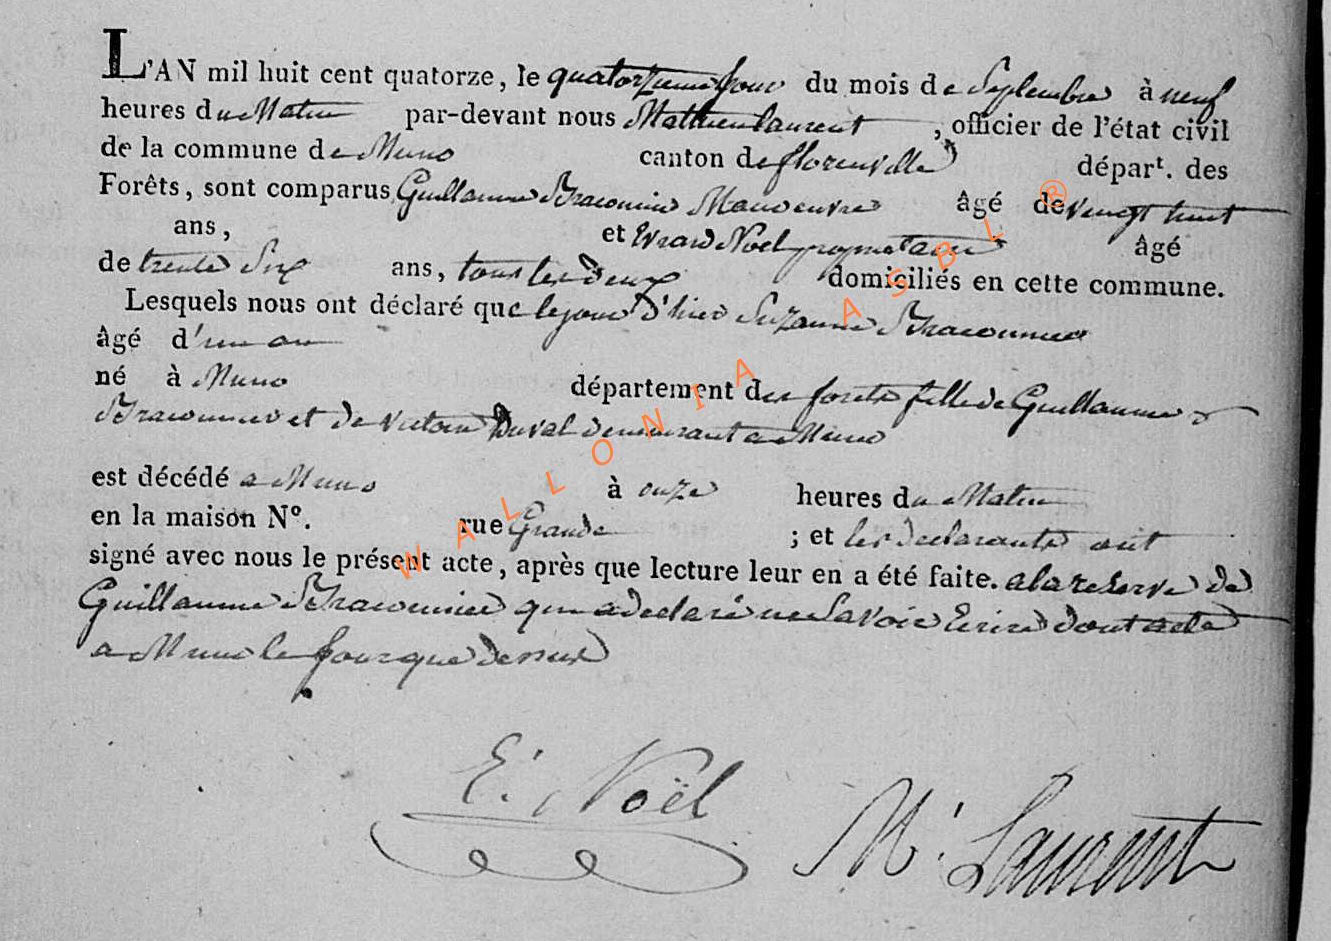 L'AN mil huit cent quatorze, le quatorzieme jour du mois de Septembre à neuf
heures du Matin par-devant nous Mathieu laurent, officier de l'état civil
de la commune de Muno canton de florenville départ. des
Forêts, sont comparus Guillaume Braconnier Manoeuvre âgé de veingt huit
ans, et Evrard Noël proprietaire âgé
de trente Six ans, tous les deux domiciliés en cette commune.
Lesquels nous ont déclaré que le jour d'hier Suzanne Braconnier
âgé d'un an
né à Muno département des forets fille de Guillaume
Braconnier et de Victoire Duval demeurant a Muno
est décédé a Muno à onze heures du Matin
en la maison N°. rue Grande ; et les declarants ont
signé avec nous le présent acte, après que lecture leur en a été faite. a la reserve de
Guillaume Braconnier qui a declaré ne Savoir Ecrire dont acte
a Muno le jour que dessus
E. Noël M. Laurent
WALLONIA ASBL ®